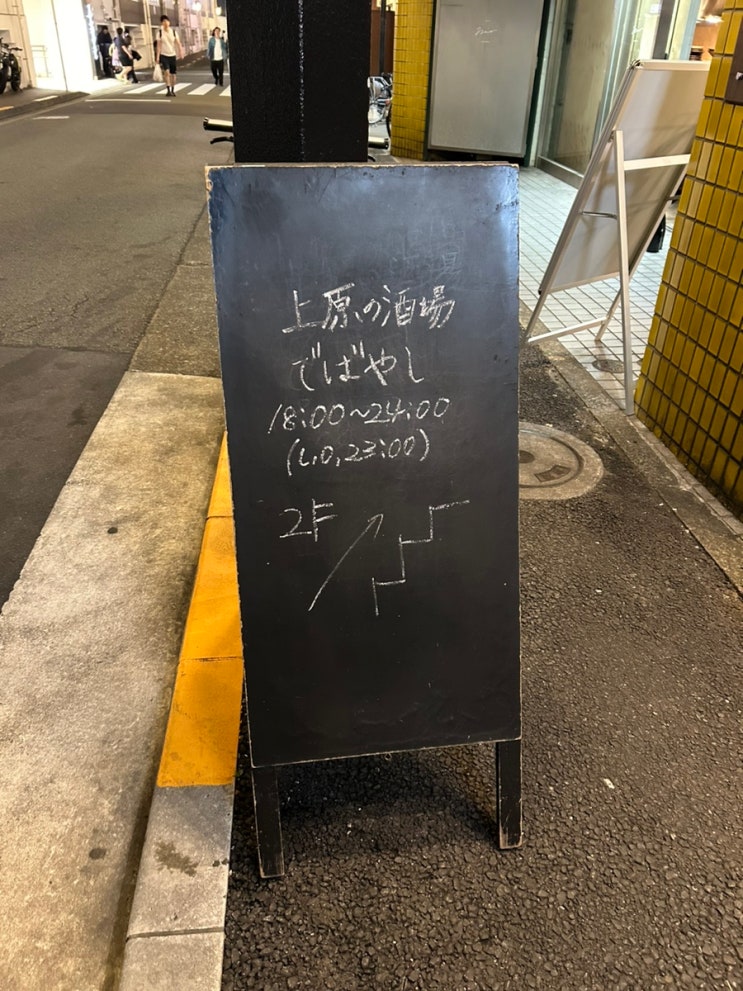 上原の酒場
でばやし
18:00〜24:00
(L.O,23:00)
2F